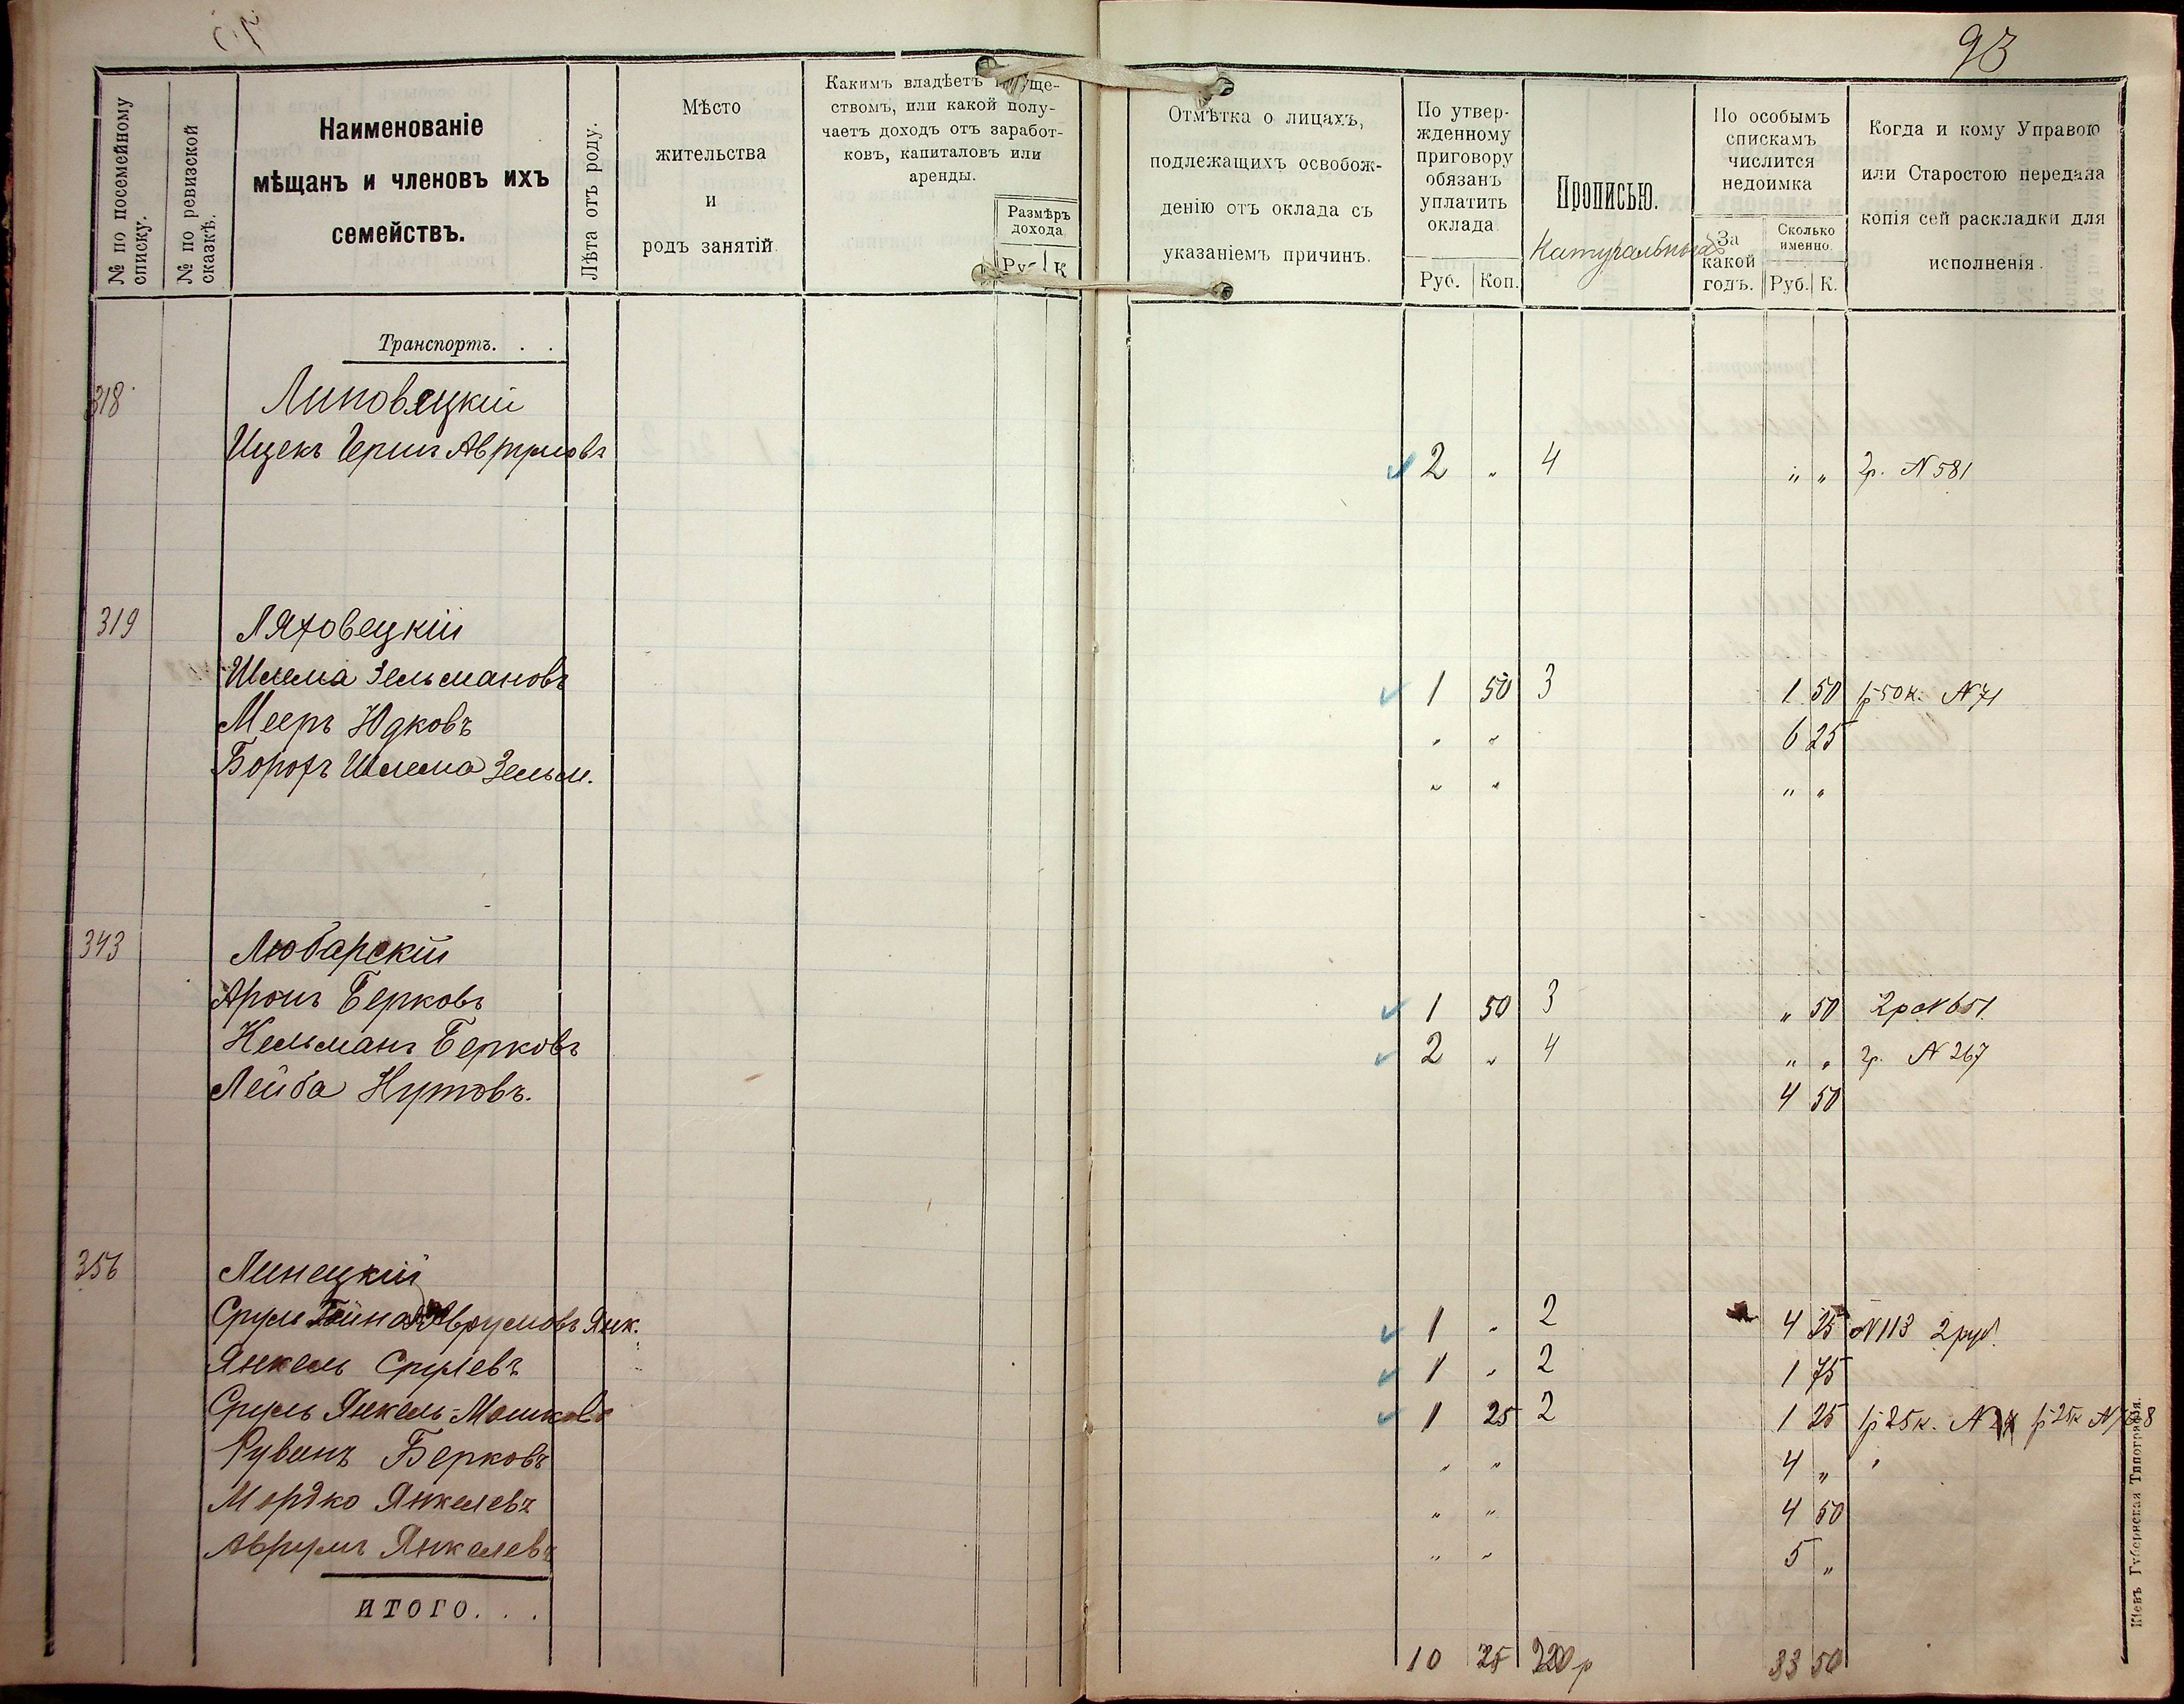 93
№ по посемейному списку.
№ по ревизской сказкѣ.
Наименованіе
мѣщанъ и членовъ ихъ
семействъ.
Лѣта отъ роду.
Мѣсто
жительства
и
родъ занятій.
Какимъ владѣетъ
ствомъ, или какой полу-
чаетъ доходъ отъ заработ-
ковъ, капиталовъ или
аренды.
Размѣръ
дохода
К
Отмѣтка о лицахъ,
подлежащихъ освобож-
денію отъ оклада съ
указаніемъ причинъ.
По утвер-
жденному
приговору
обязанъ
уплатить
оклада
Руб. Коп.
Прописью.
По особымъ
спискамъ
числится
недоимка
За
какой
годъ.
Сколько
именно.
Руб. К.
Когда и кому Управою
или Старостою передана
копія сей раскладки для
исполненія.
Транспортъ. . .
318 Липовецкій
Ицекъ Герш 2 " 4 " " 2р. N 581
319 Ляховецкій
Шлема Зельмановъ 1 50 3 1 50 1р 50к. N 71
Мееръ Юдковъ " " 6 25
Борохъ Шлема Зельм. " " " "
343 Любарскій
Аронъ Берковъ 1 50 3 " 50 2р N 651
Кельманъ Берковъ 2 " 4 " " 2р. N 267
Лейба Нутовъ. 4 50
356 Линецкій
Сруль Аврумовъ Янк. 1 " 2 4 25 N 113 2 руб.
Янкель Срулевъ 1 " 2 1 75
Сруль Янкель-Мошковъ 1 25 2 1 25 1р 25к. N 1р 25к N
Рувинъ Берковъ " " 4 "
Мордко Янкелевъ " " 4 50
Аврумъ Янкелевъ " " 5 "
ИТОГО. . .
10 25 33 50
Кіевъ Губернская Типографія.